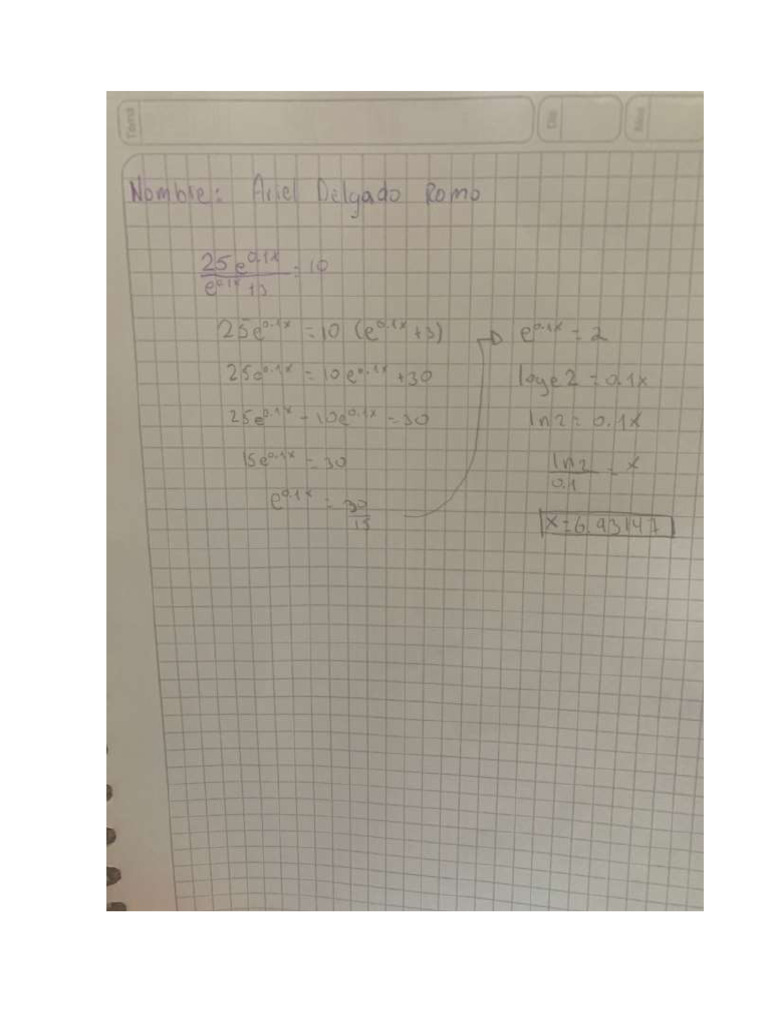 Tema
Día
Mes
Nombre: Ariel Delgado Romo
25e^0.1x / e^0.1x +3 = 10
25e^0.1x = 10 (e^0.1x +3)
25e^0.1x = 10e^0.1x +30
25e^0.1x - 10e^0.1x = 30
15e^0.1x = 30
e^0.1x = 30/15
e^0.1x = 2
loge2 = 0.1x
ln2 = 0.1x
ln2/0.1 = x
x=6.93147